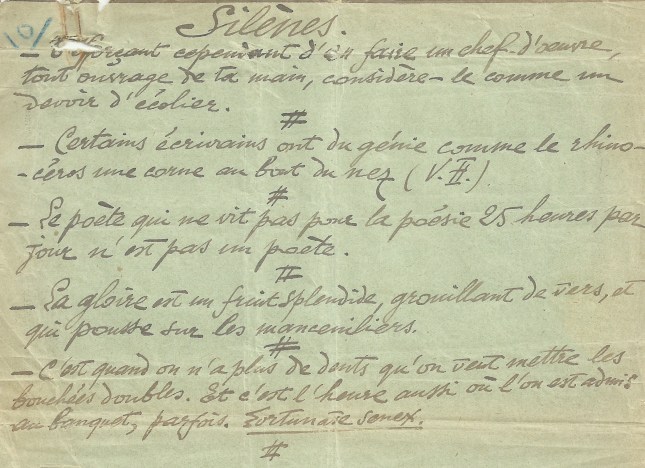 Silènes.
10/
— T'efforçant cependant d'en faire un chef-d'œuvre,
tout ouvrage de ta main, considère-le comme un
devoir d'écolier.
#
— Certains écrivains ont du génie comme le rhino-
-céros une corne au bout du nez (V.H.)
#
— Le poète qui ne vit pas pour la poésie 25 heures par
jour n'est pas un poète.
#
— La gloire est un fruit splendide, grouillant de vers, et
qui pousse sur les mancenilliers.
#
— C'est quand on n'a plus de dents qu'on veut mettre les
bouchées doubles. Et c'est l'heure aussi où l'on est admis
au banquet, parfois. Fortunate senex.
#